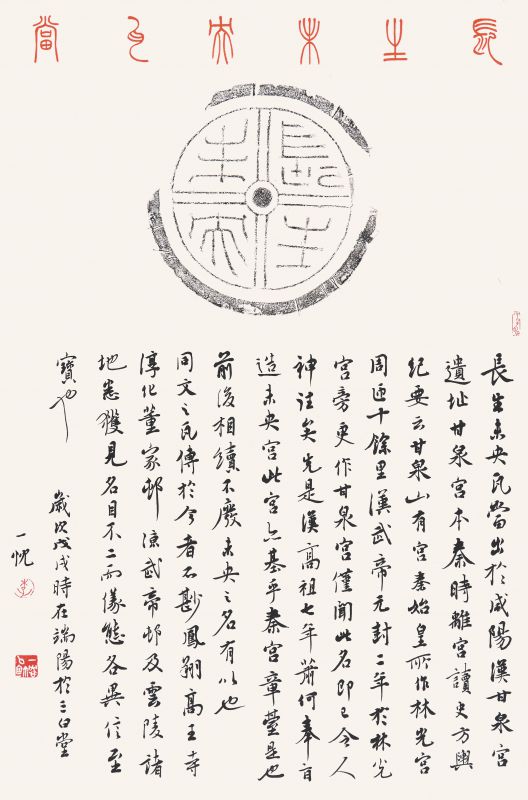 長生未央瓦當
長生未央
長生未央瓦當出於咸陽漢甘泉宮
遺址甘泉宮本秦時離宮讀史方輿
紀要云甘泉山有宮秦始皇所作林光宮
周匝十餘里漢武帝元封二年於林光
宮旁更作甘泉宮僅聞此名即已令人
神往矣先是漢高祖七年蕭何奉旨
造未央宮此宮亦基乎秦宮章臺是也
前後相續不廢未央之名有以也
同文之瓦傳於今者不尠鳳翔高王寺
淳化董家邨涼武帝邨及雲陵諸
地悉獲見名目不二而儀態各異信至
寶也
歲次戊戌時在端陽於三白堂
一忱